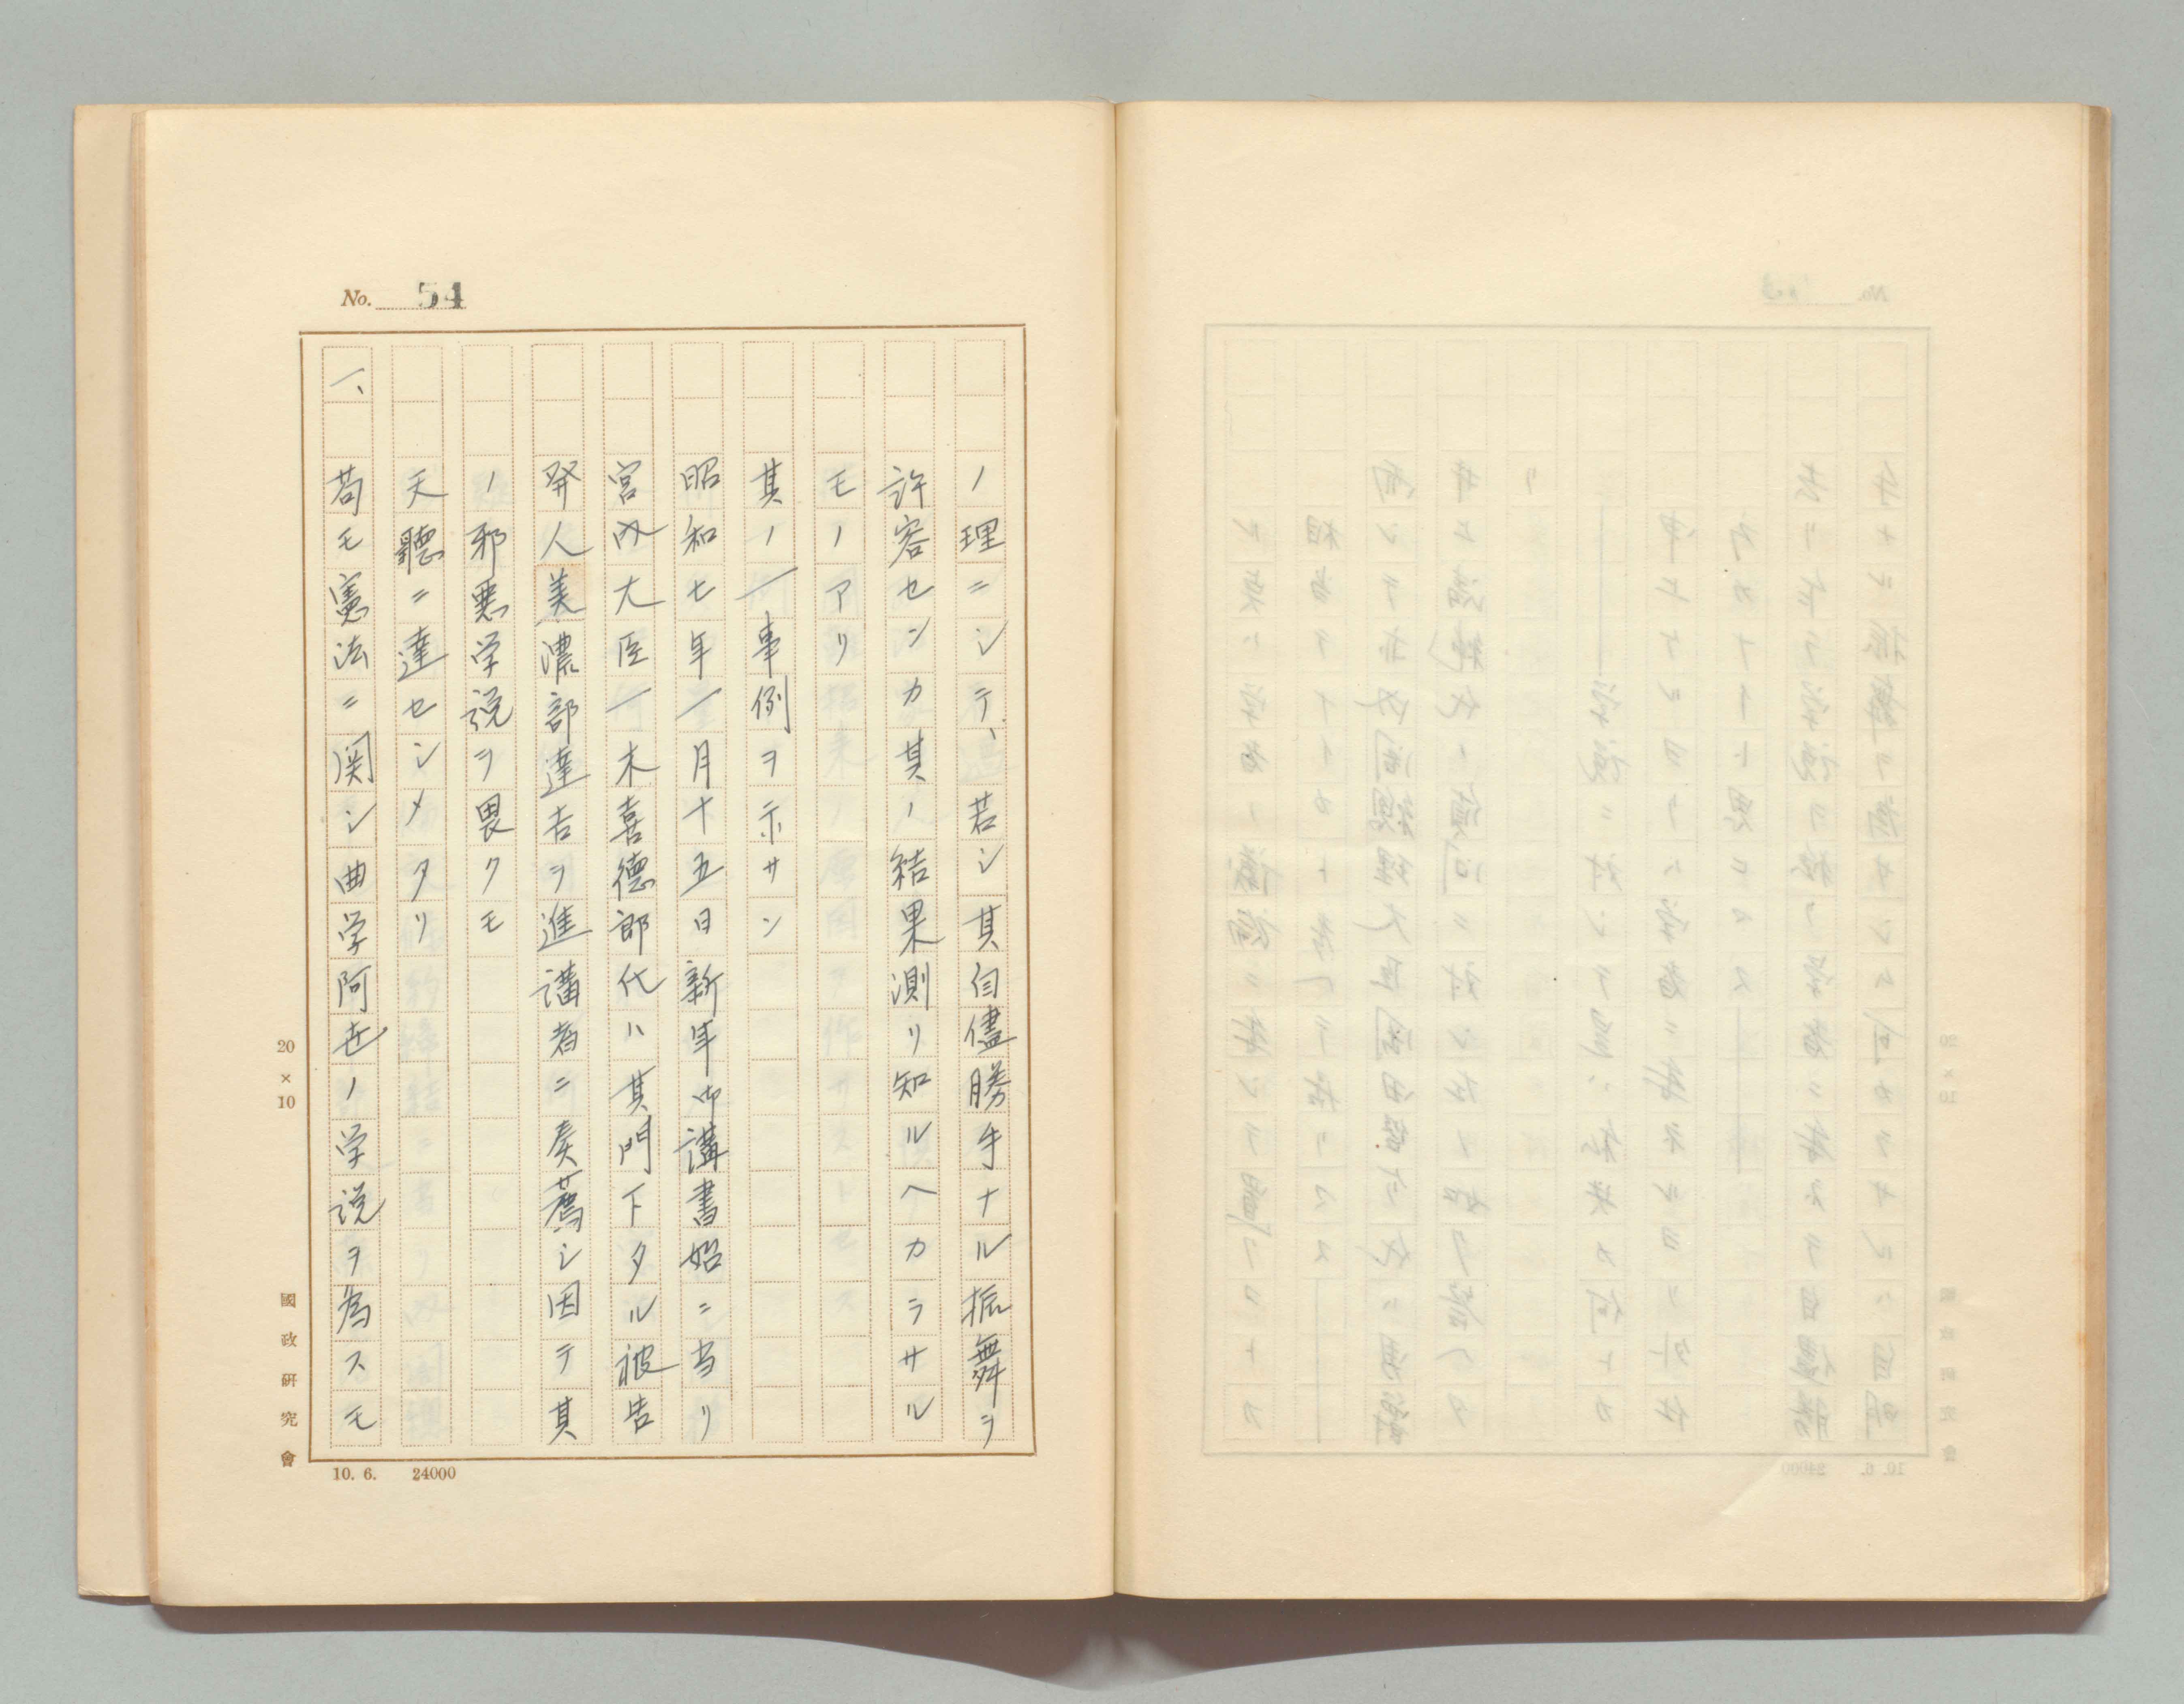 No. 54
ノ理ニシテ、若シ其自儘勝手ナル振舞ヲ
許容センカ其ノ結果測リ知ルヘカラサル
モノアリ
其ノ一事例ヲ示サン
昭和七年一月十五日新年御講書始ニ当リ
宮内大臣一木喜徳郎代ハ其門下タル被告
発人美濃部達吉ヲ進講者ニ奏薦シ因テ其
ノ邪悪学説ヲ畏クモ
天聽ニ達センメタリ
一、苟モ憲法ニ関シ曲学阿世ノ学説ヲ為スモ
20×10
國政研究會
10. 6. 24000